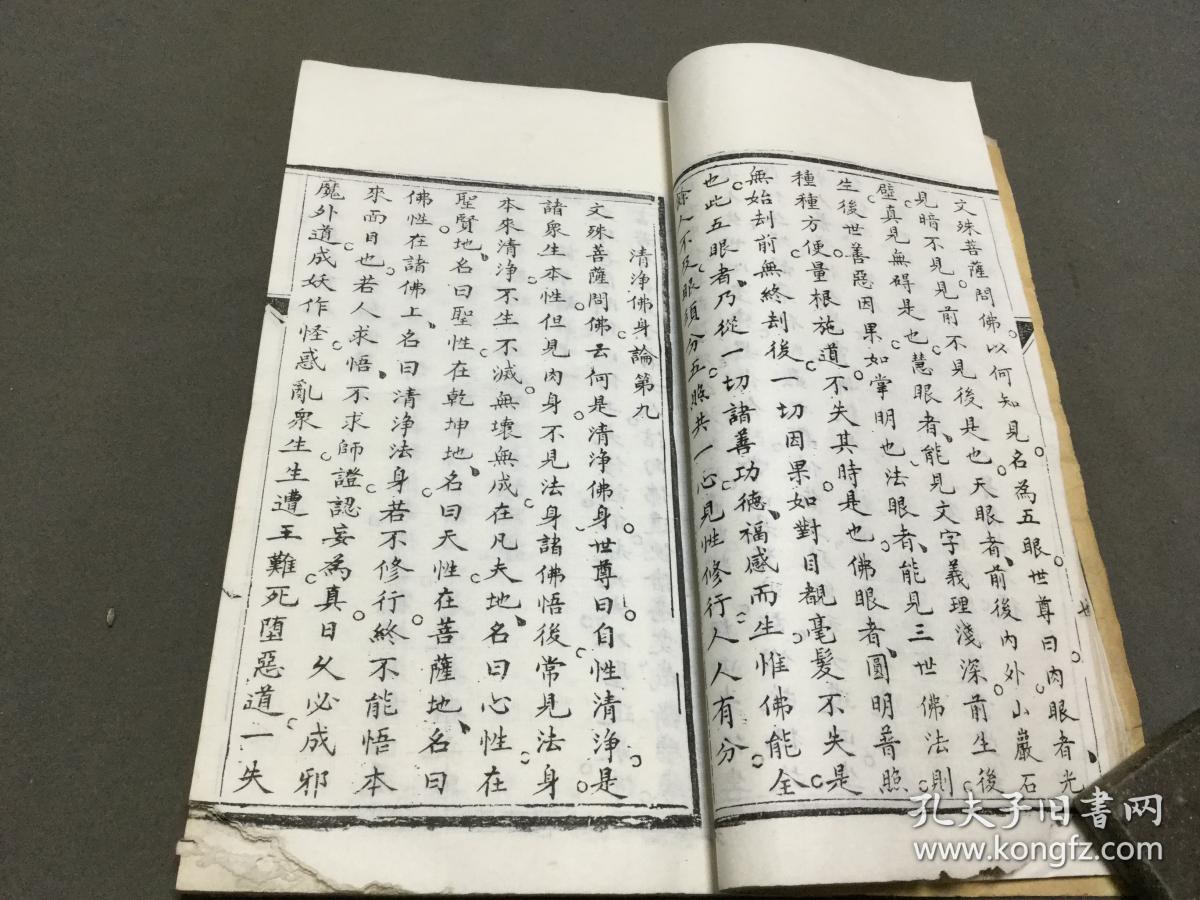 文殊菩薩問佛。以何知見。名為五眼。世尊曰。肉眼者光
見暗不見。見前不見後是也。天眼者。前後內外。山巖石
壁。真見無碍是也。慧眼者。能見文字義理淺深。前生後
生。後世善惡因果。如掌明也。法眼者。能見三世佛法。則
種種方便。量根施道。不失其時是也。佛眼者。圓明普照。
無始刦前。無終刦後。一切因果。如對目覩。毫髮不失是
也。此五眼者。乃從一切諸善功德。福感而生。惟佛能全。
餘人不及。眼須分五。照共一心。見性修行。人人有分。
清淨佛身論第九
文殊菩薩問佛。云何是清淨佛身。世尊曰。自性清淨。是
諸眾生本性。但見肉身。不見法身。諸佛悟後。常見法身。
本來清淨。不生不滅。無壞無成。在凡夫地。名曰心性。在
聖賢地。名曰聖性。在乾坤地。名曰天性。在菩薩地。名曰
佛性。在諸佛上。名曰清淨法身。若不修行。終不能悟本
來面目也。若人求悟。不求師證。認妄為真。日久必成邪
魔外道。成妖作怪。惑亂眾生。生遭王難。死墮惡道。一失
孔夫子旧書网
www.kongfz.com